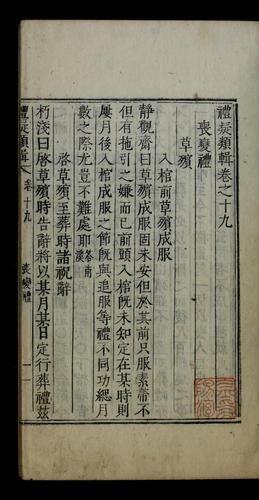 禮疑類輯卷之十九
喪變禮
草殯
入棺前草殯成服
靜觀齋曰草殯成服固未安但於其前只服素帶不
但有拖引之嫌而已前頭入棺旣未知定在某時則
屢月後入棺成服之節旣與追服等禮不同功緦月
數之際尤豈不難處耶答南溪
啓草殯至葬時諸祝辭
朽淺曰啓草殯時告辭將以某月某日定行葬禮茲
禮疑類輯
卷十九
喪變禮
一